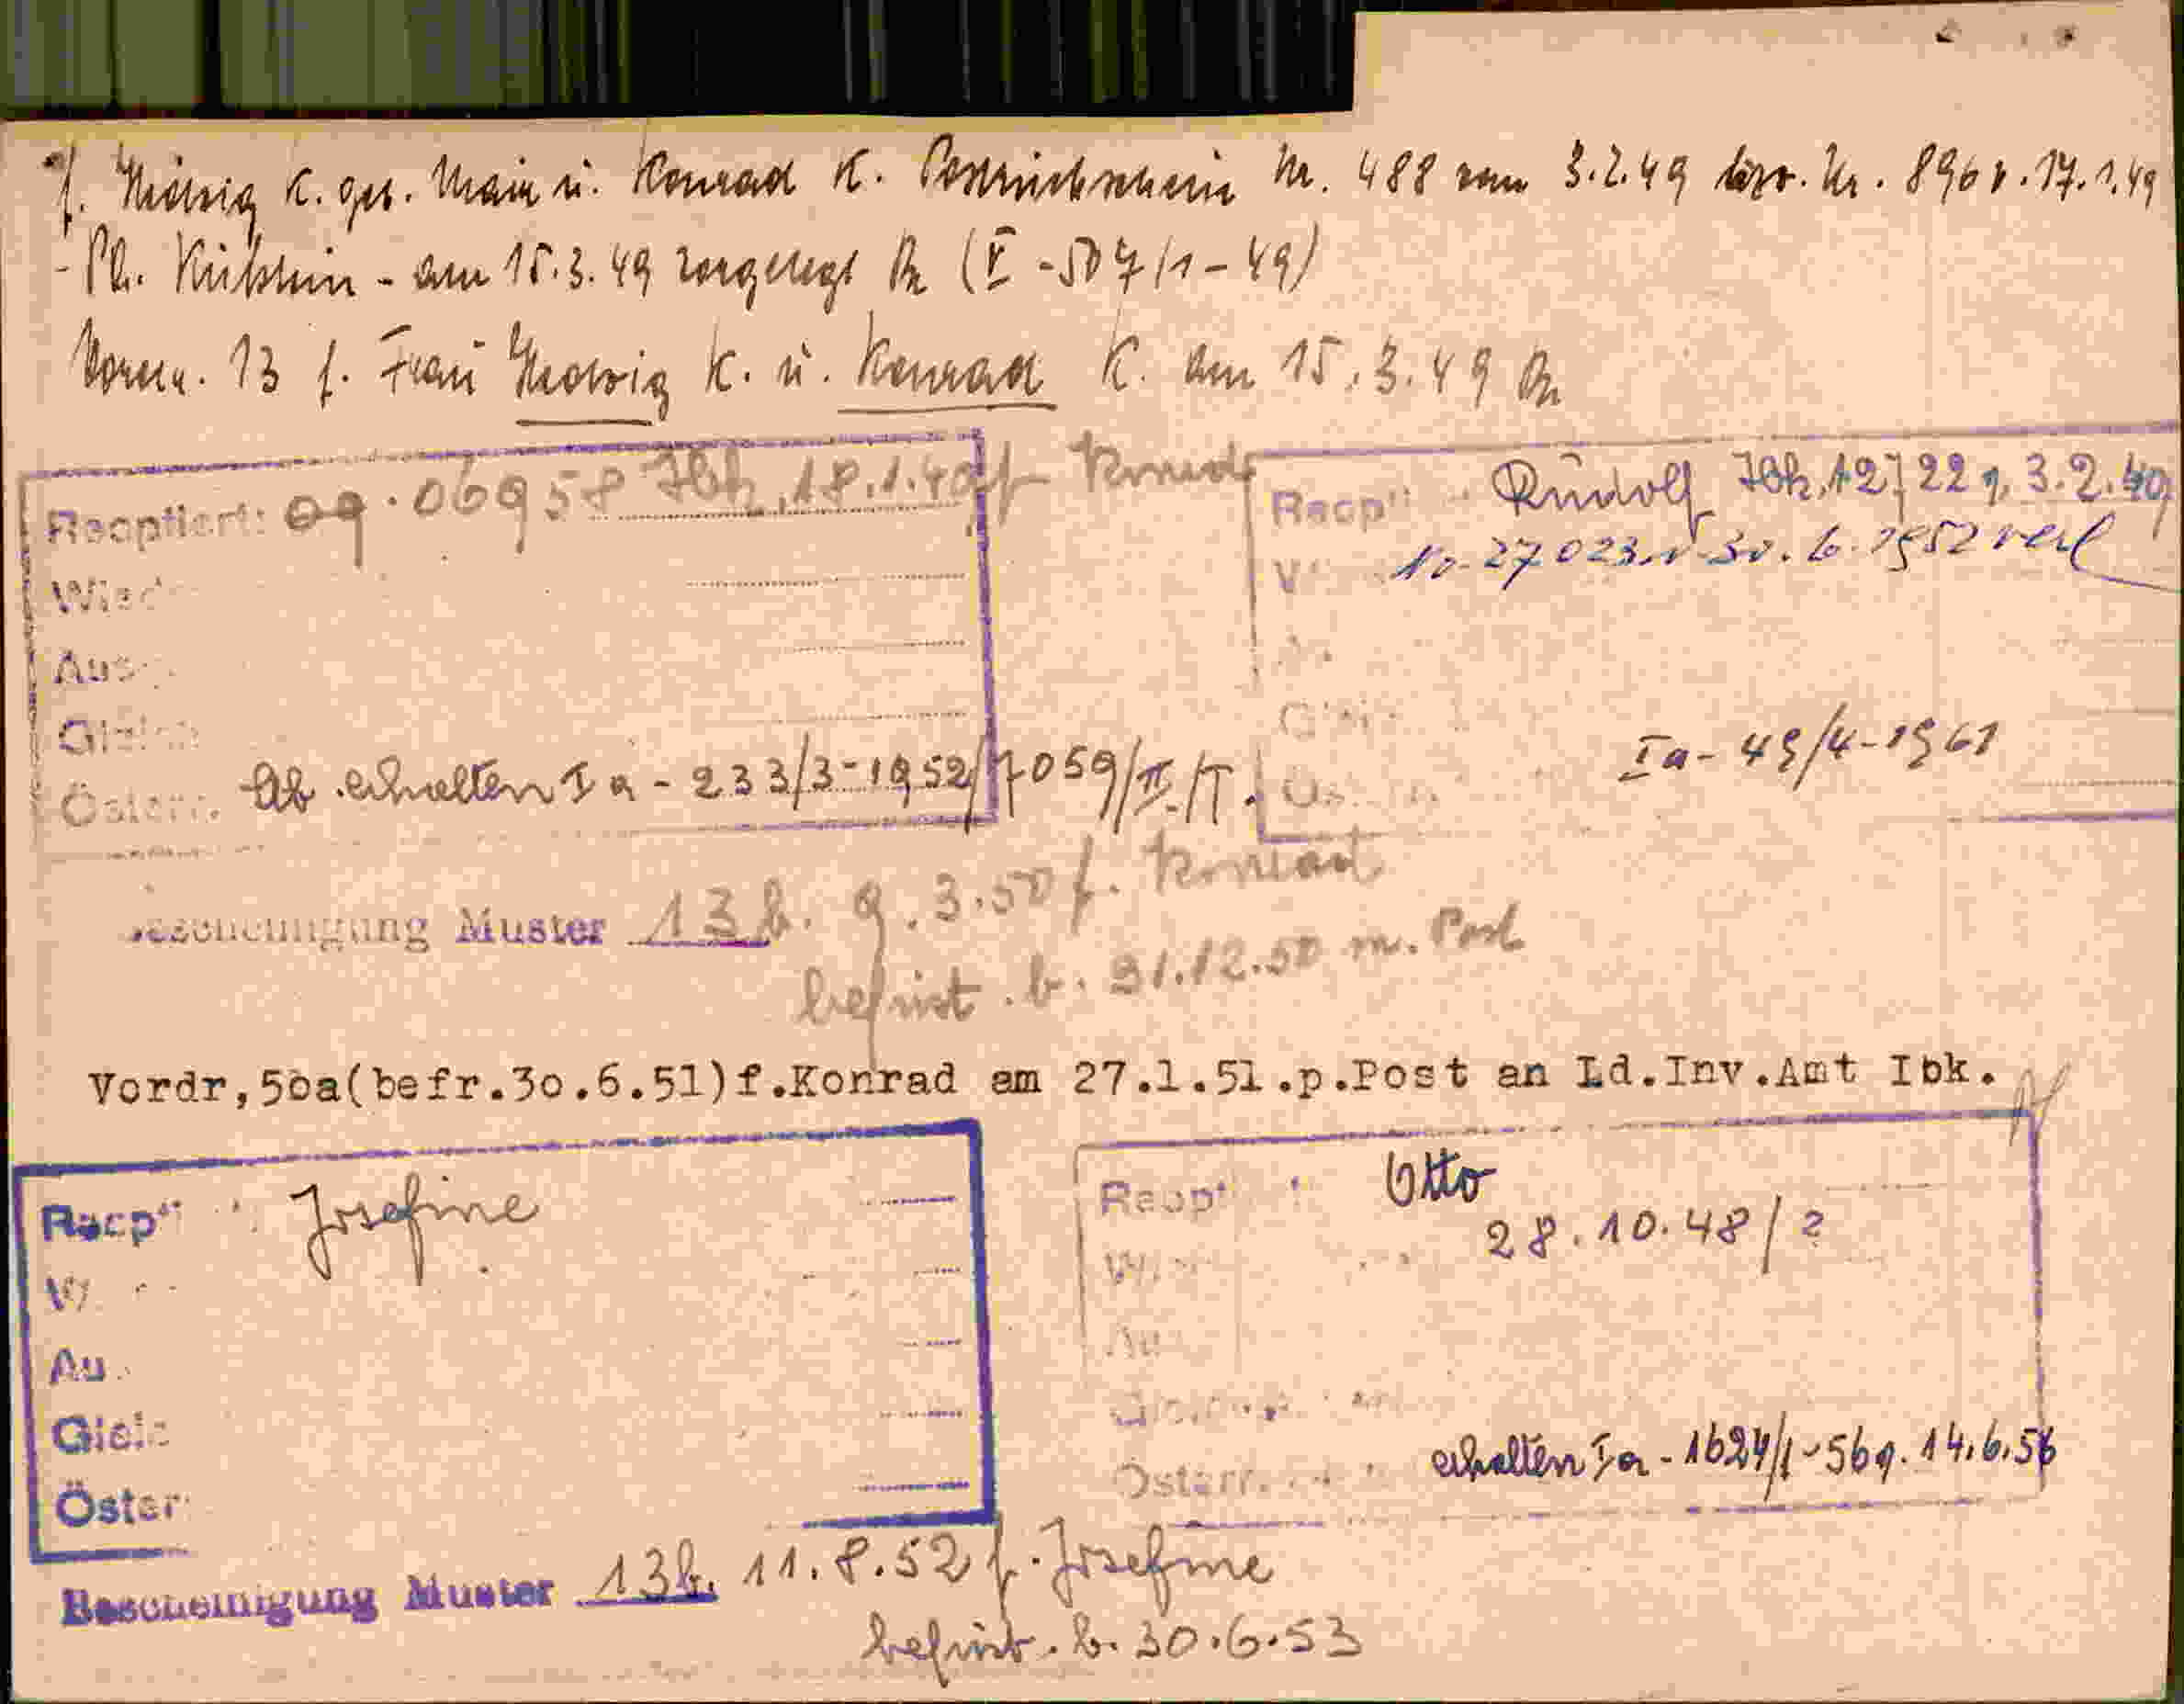 f. Hedwig K. geb. Mair u. Konrad K. Postrückschein Nr. 488 vom 3.2.49 bzw. Nr. 896 v. 17.1.49
- am 15.3.49 vorgelegt (V - 507/1 - 49)
13 f. Frau Hedwig K. u. Konrad K. am 15.3.49
Reoptiert: 09.06958 Ibk, 18.1.49 f. Konrad
Wied
Ausg
Gleic
Österr. Ab erhalten I a - 233/3-1952/7059/II./T.
Reopt Rudolf Ibk, 12722 g, 3.2.49
No. 27023. v. 30.6.1952 verl
Ia - 49/4-1961
Bescheinigung Muster 13 b. 9.3.50 f. Konrad
befrist. b. 31.12.50 m. Post
Vordr,50a(befr.30.6.51)f.Konrad am 27.1.51.p.Post an Ld.Inv.Amt Ibk.
Reopt Josefine
W
Au
Gleic
Öster
Reopt Otto
28.10.48/?
Österr. erhalten I a - 1624/1-56 g. 14.6.56
Bescheinigung Muster 13 b. 11.8.52 f. Josefine
befrist. b. 30.6.53